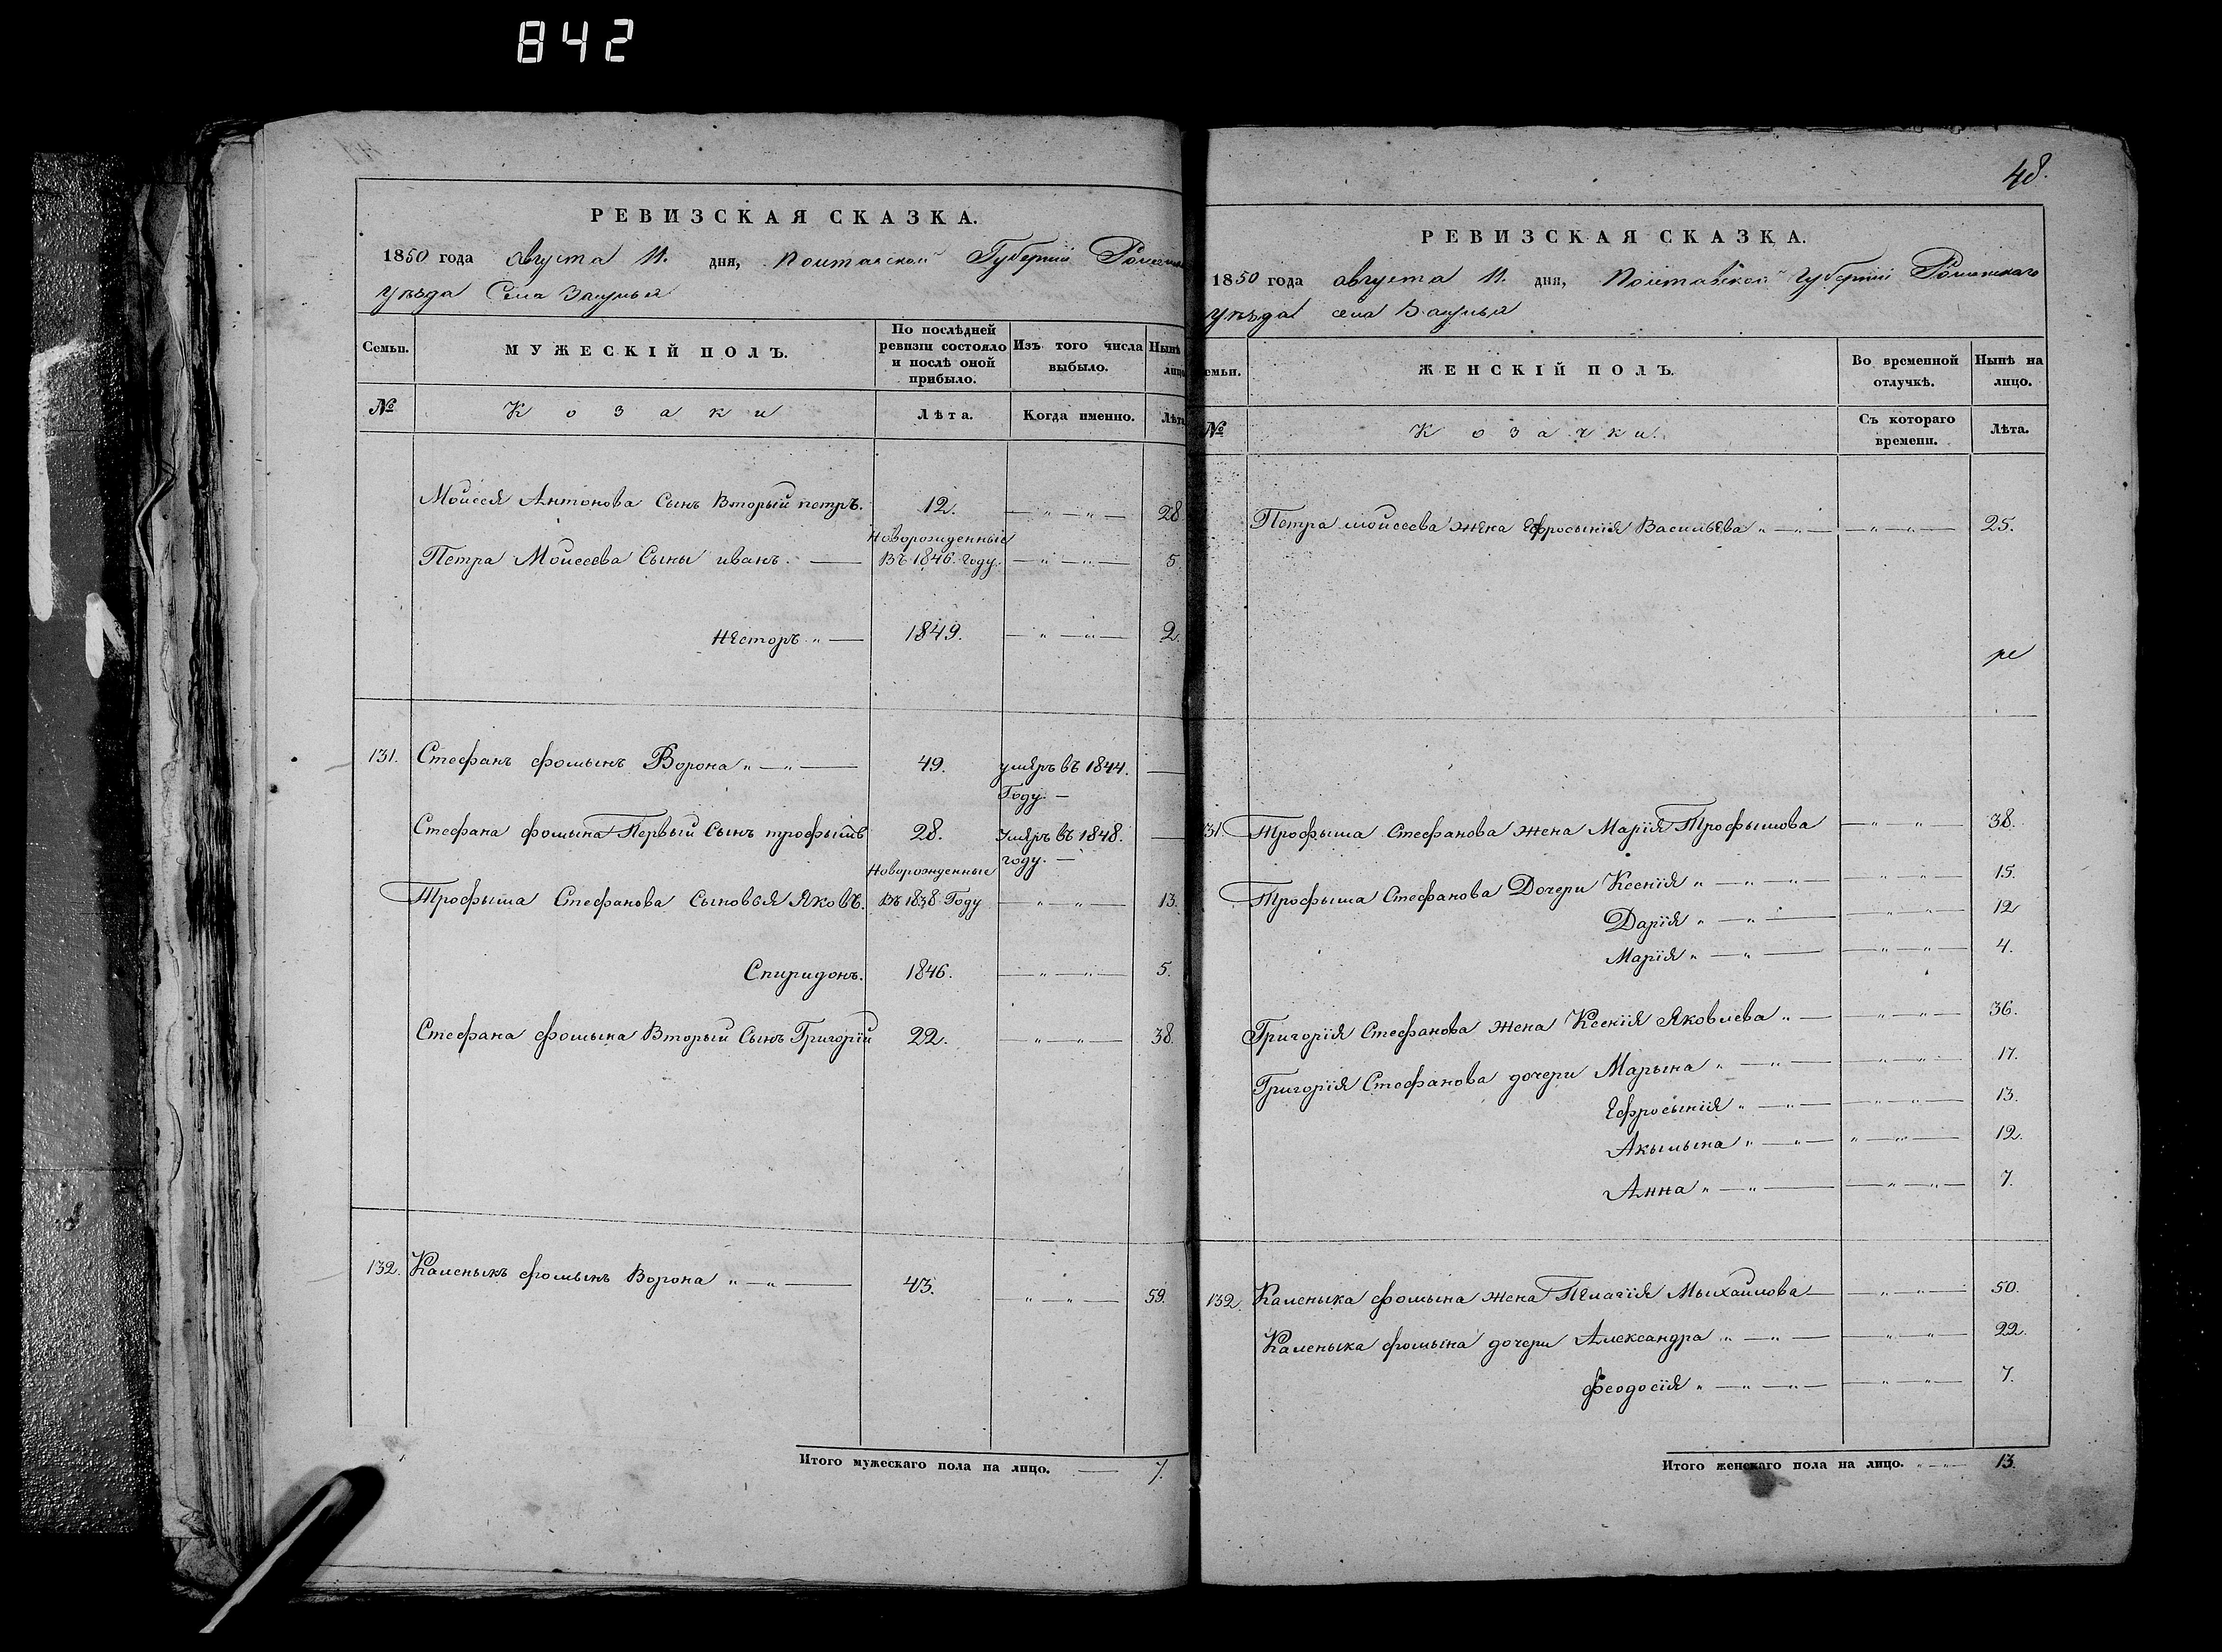 842
РЕВИЗСКАЯ СКАЗКА.
1850 года августа 11. дня, Полтавской Губерніи
уѣзда Села
Семьи.
МУЖЕСКІЙ ПОЛЪ.
По послѣдней ревизіи состояло и послѣ оной прибыло.
Изъ того числа выбыло.
Нынѣ лицо
№
Козаки
Лѣта.
Когда именно.
Лѣта
Моисея Антонова Сынъ Вторый петръ. 12. 28
Новорожденные
Петра Моисеева Сыны иванъ. въ 1846 году. 5
Несторъ 1849. 2.
131. Стефанъ фомынъ Ворона 49. умяръ въ 1844.
Году.
Стефана фомына Первый Сынъ трофымъ 28. Умяръ въ 1848.
году.
Новорожденные
Трофыма Стефанова Сыновья Яковъ. Въ 1838 Году 13.
Спиридонъ. 1846. 5.
Стефана фомына Вторый Сынъ Григорій 22. 38.
132. Каленыкъ фомынъ Ворона 43. 59.
Итого мужескаго пола на лицо. 7.
48.
РЕВИЗСКАЯ СКАЗКА.
1850 года августа 11. дня, Полтавской Губерніи Роменскаго
уѣзда села
емьи.
ЖЕНСКІЙ ПОЛЪ.
Во временной отлучкѣ.
Нынѣ на лицо.
№
Козачки.
Съ котораго времени.
Лѣта.
Петра моисеева жена Ефросынія Васильева 25.
31. Трофыма Стефанова жена Марія Трофымова 38.
Трофыма Стефанова Дочери Ксенія 15.
Дарія 12
Марія 4.
Григорія Стефанова жена Ксенія Яковлева 36.
Григорія Стефанова дочери Марына 17.
Ефросынія 13.
Акылына 12.
Анна 7.
132. Каленыка фомына жена Пелагія Мыхайлова 50.
Каленыка фомына дочери Александра 22.
феодосія 7.
Итого женскаго пола на лицо. 13.